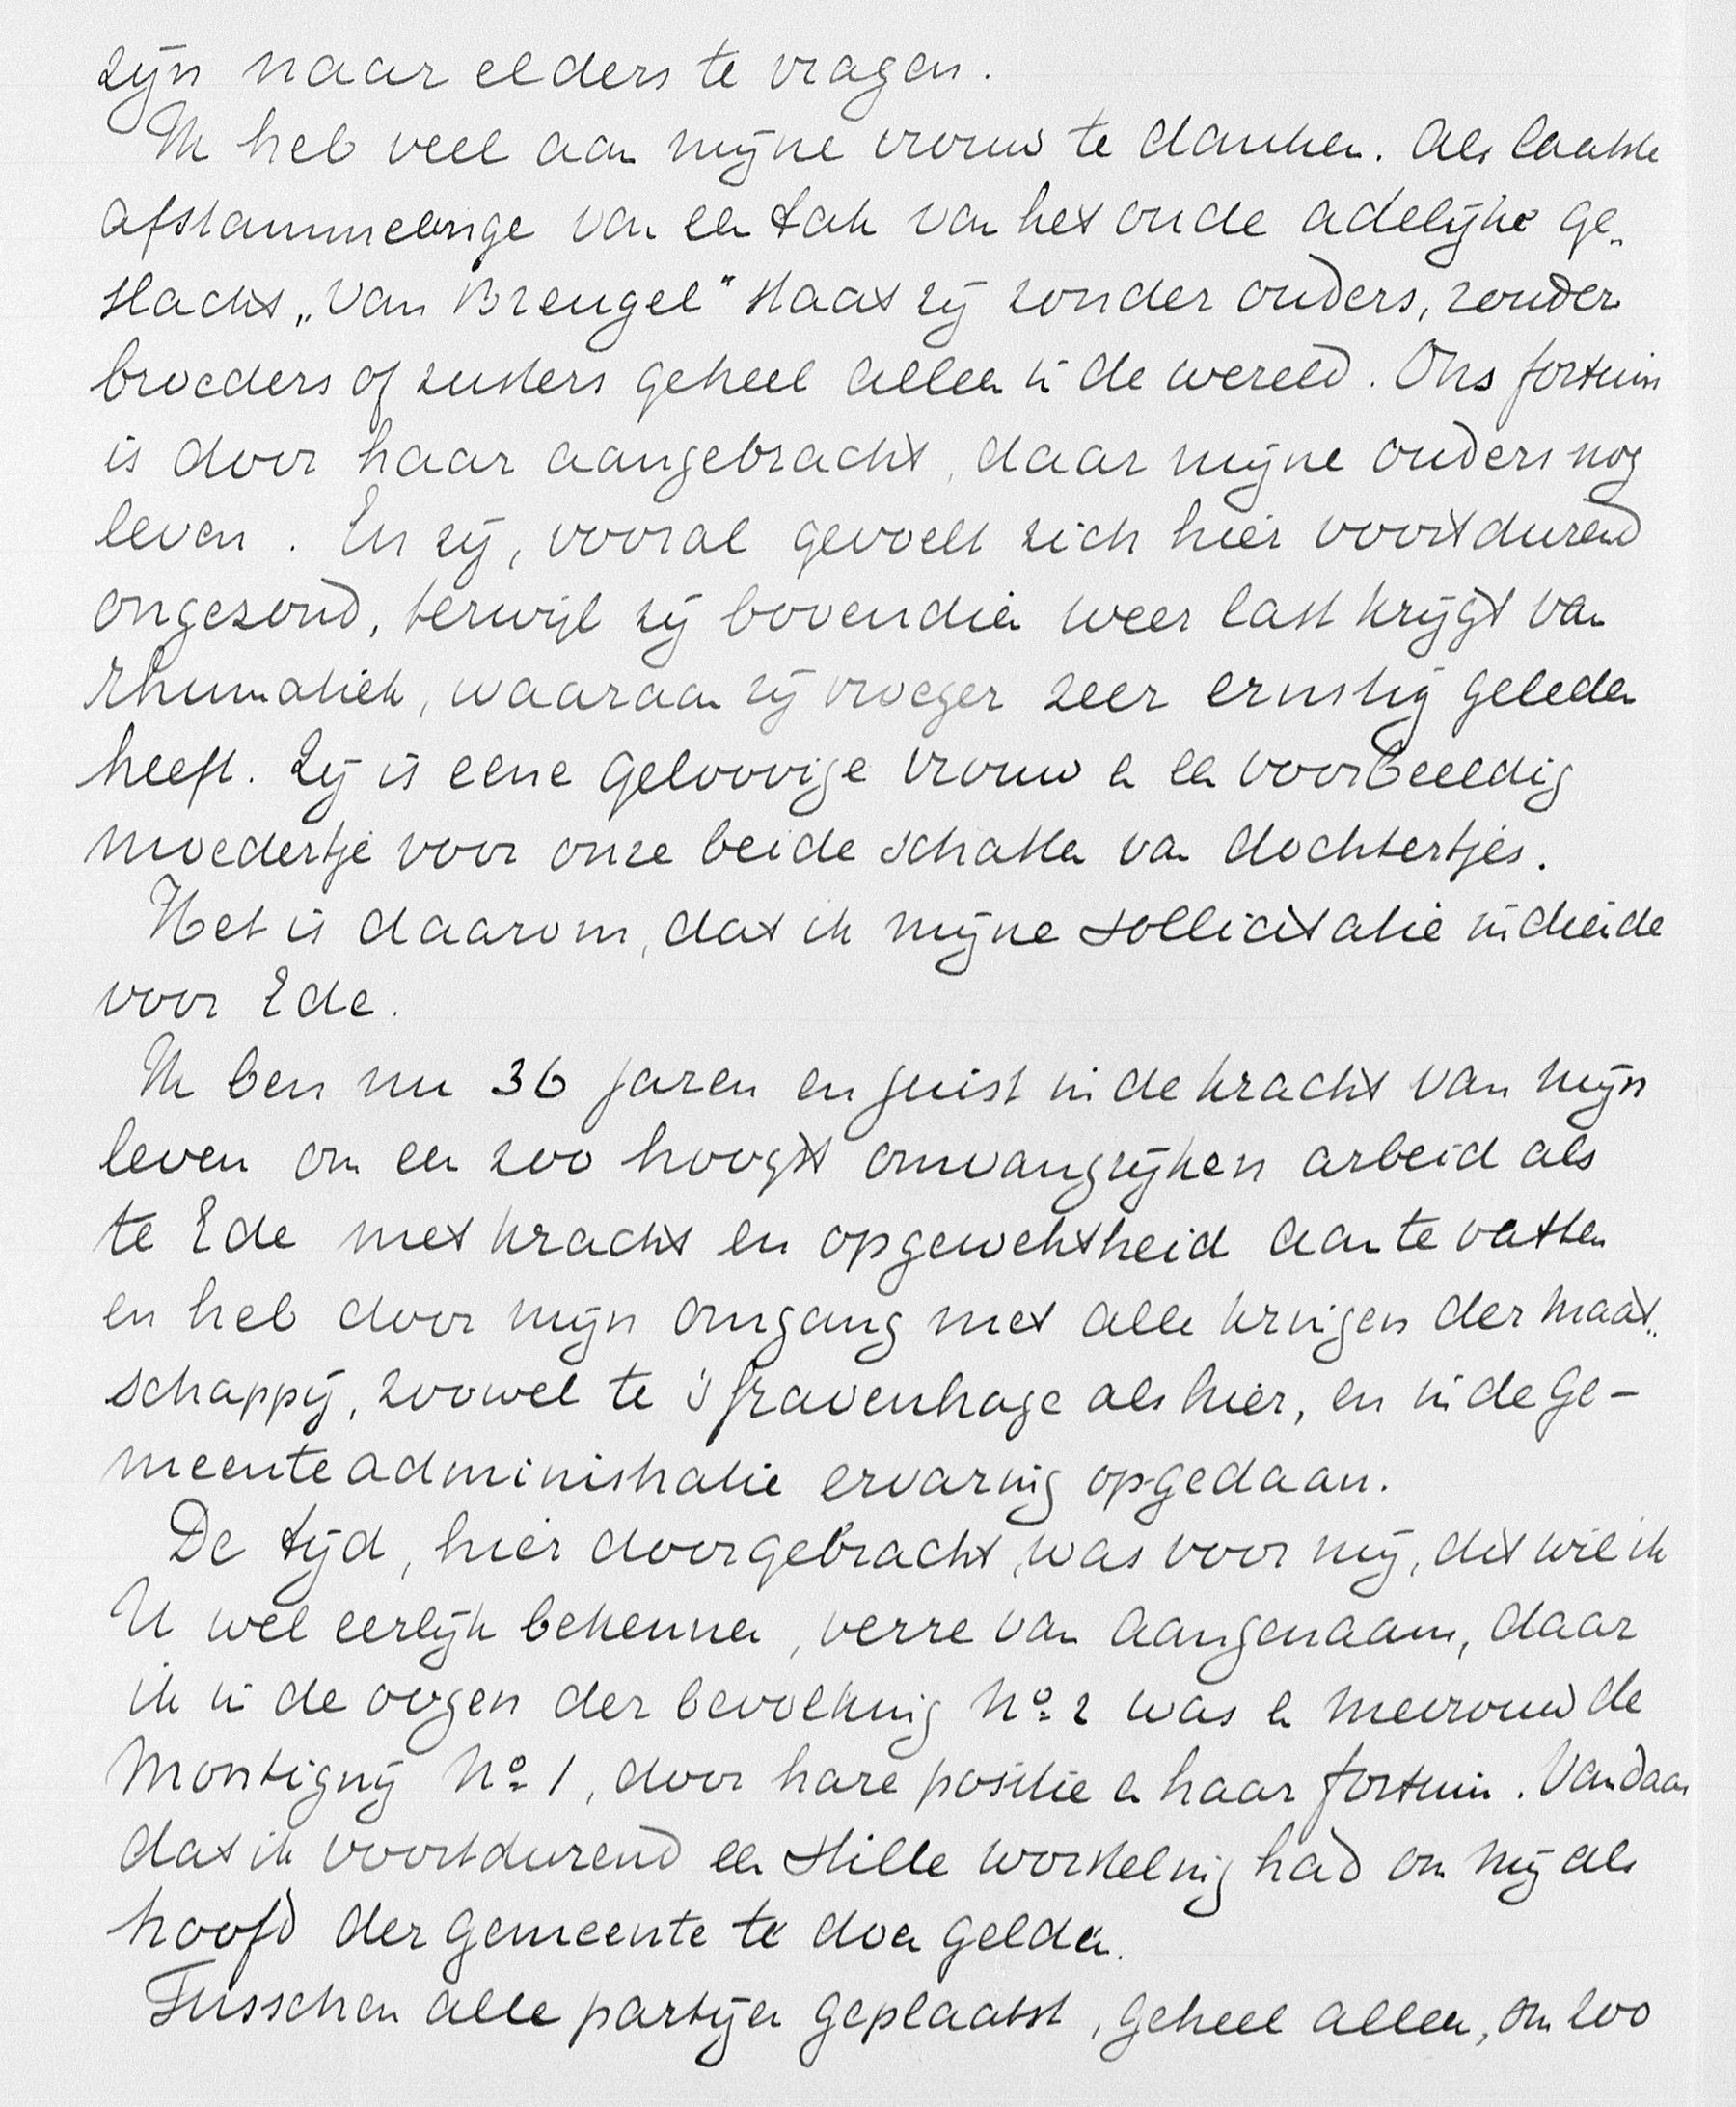 zijn naar elders te vragen.
Ik heb veel aan mijne vrouw te danken. Als laatste
afstammelinge van een tak van het oude adelijke ge„
slacht „Van Brengel" staat zij zonder ouders, zonder
broeders of zusters geheel alleen in de wereld. Ons fortuin
is door haar aangebracht, daar mijne ouders nog
leven. En zij, vooral gevoelt zich hier voortdurend
ongezond, terwijl zij bovendien weer last krijgt van
rhumatiek, waaraan zij vroeger zeer ernstig geleden
heeft. Zij is eene geloovige vrouw en een voorbeeldig
moedertje voor onze beide schatten van dochtertjes.
Het is daarom, dat ik mijne sollicitatie indiende
voor Ede.
Ik ben nu 36 jaren en juist in de kracht van mijn
leven om een zoo hoogst omvangrijken arbeid als
te Ede met kracht en opgewektheid aan te vatten
en heb door mijn omgang met alle kringen der maat„
schappij, zoowel te 's Gravenhage als hier, en in de ge-
meenteadministratie ervaring opgedaan.
De tijd, hier doorgebracht, was voor mij, dit wil ik
U wel eerlijk bekennen, verre van aangenaam, daar
ik in de oogen der bevolking No 2 was en mevrouw de
Montigny No 1, door hare positie en haar fortuin. Vandaar
dat ik voortdurend een stille worsteling had om mij als
hoofd der gemeente te doen gelden.
Tusschen alle partijen geplaatst, geheel alleen, om zoo